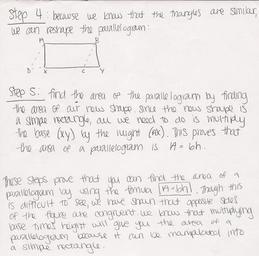 Step 4: because we know that the triangles are similar,
we can reshape the parallelogram:
A B
D X C Y
Step 5. find the area of the parallelogram by finding
the area of our new shape. Since the new shape is
a simple rectangle, all we need to do is multiply
the base (xy) by the height (AX). This proves that
the area of a parallelogram is A = bh.
These steps prove that you can find the area of a
parallelogram by using the formula A=bh. Though this
is difficult to see, we have shown that opposite sides
of the figure are congruent. We know that multiplying
base times height will give you the area of a
parallelogram because it can be manipulated into
a simple rectangle.